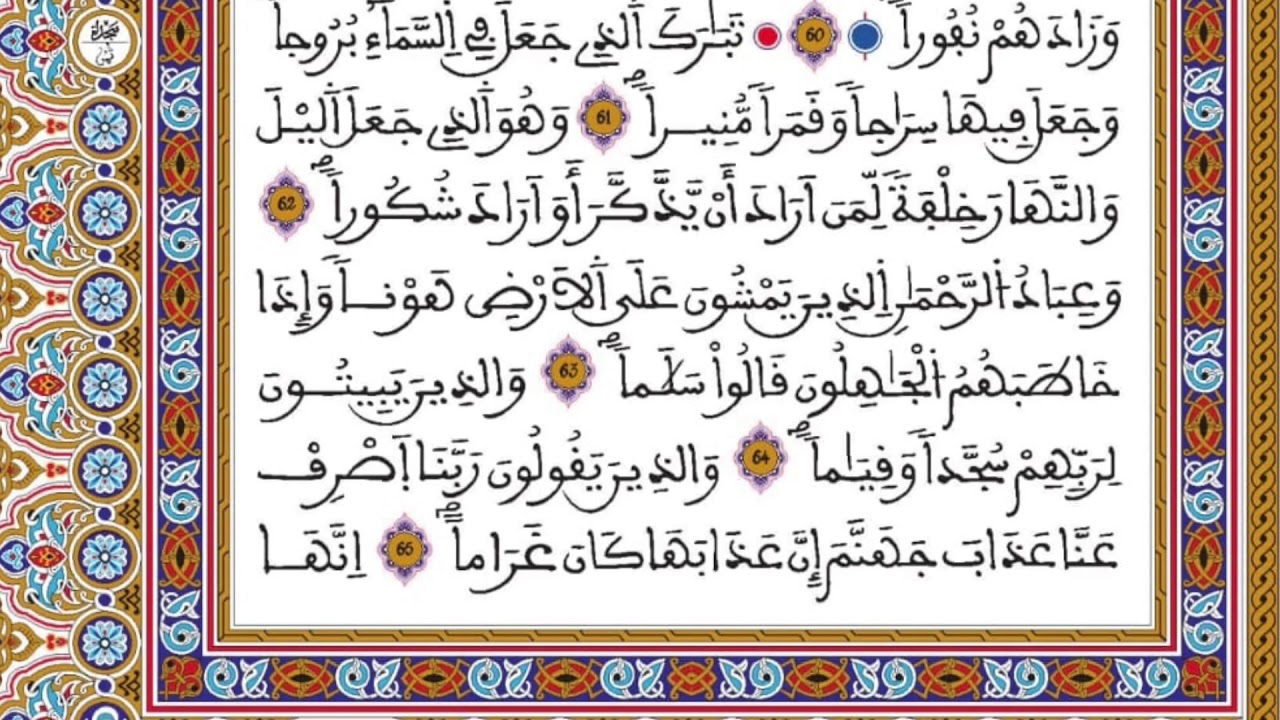 وَزَادَهُمْ نُفُوراً 60 تَبَٰرَكَ اَ۬لذِے جَعَلَ فِے اِ۬لسَّمَآءِ بُرُوجاً
وَجَعَلَ فِيهَا سِرَٰجاً وَقَمَراً مُّنِيراً 61 وَهُوَ اَ۬لذِے جَعَلَ اَ۬ليْلَ
وَالنَّهَارَ خِلْفَةً لِّمَنَ اَرَادَ أَنْ يَّذَّكَّرَ أَوَ اَرَادَ شُكُوراً 62
وَعِبَادُ اُ۬لرَّحْمَٰنِ اِ۬لذِينَ يَمْشُونَ عَلَي اَ۬لَارْضِ هَوْناً وَإِذَا
خَاطَبَهُمُ اُ۬لْجَٰهِلُونَ قَالُواْ سَلَٰماً 63 وَالذِينَ يَبِيتُونَ
لِرَبِّهِمْ سُجَّداً وَقِيَٰماً 64 وَالذِينَ يَقُولُونَ رَبَّنَا اَ۪صْرِفْ
عَنَّا عَذَابَ جَهَنَّمَ إِنَّ عَذَابَهَا كَانَ غَرَاماً 65 اِنَّهَا
سجدة